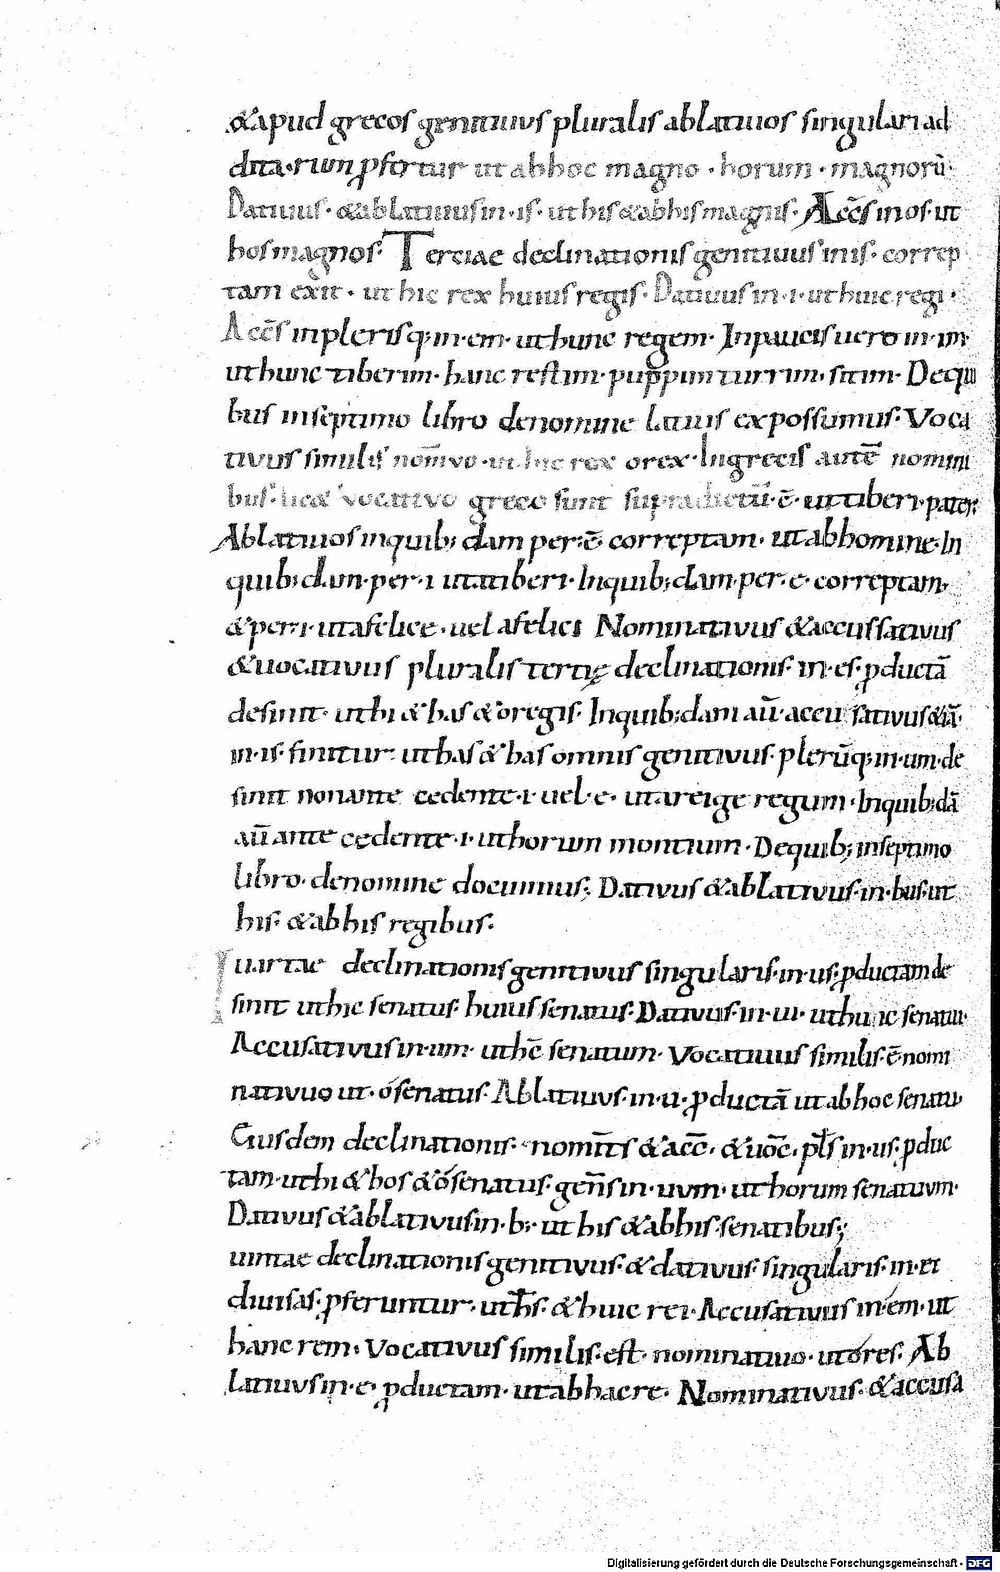 &apud grecos genitiuus pluralis ablatiuos singulari ad
dita·rum ꝓfertur ut abhoc magno·horum·magnorū·
Datiuus·&ablatiuus in·is·ut his &abhis magnis·Acc̄s in os·ut
hos magnos·Terciae declinationis genitiuus in is·correp
tam exit·ut hic rex huius regis·Datiuus in·i·ut huic regi·
Acc̄s in plerisq; in·em·ut hunc regem·In paucis uero in·im·
ut hunc tiberim·hanc restim·puppim turrim·sitim·De qui
bus in septimo libro de nomine latius expossumus·Voca
tiuus similis nom̄vo·ut hic rex o rex·In grecis autē nomini
bus· vocativo greco sunt ·ē·ut tiberi·pater;
Ablatiuos in quib; dam per·ē·correptam·ut ab homine·In
quib; dam·per·i ut a tiberi·In quib; dam·per·e·correptam·
&per·i·ut a felice·uel a felici Nominativus &accussativus
&uocativus pluralis tertię declinationis·in·es·ꝓductā
desinit·ut hi &has &o regis·In quib; dam aū·accusativus &iā·
in·is·finitur·ut has &has omnis genitivus·plerūq; in·um·de
sinit non ante cedente·i·uel·e·ut a reige regum·In quib; dā
aū ante cedente·i·ut horum montium·De quib; in septimo
libro·de nomine docuimus; Dativus &ablativus·in·bus·ut
his·&abhis regibus·
uartae declinationis genitivus singularis·in·us·ꝓductam de
sinit ut hic senatus·huius senatus·Dativus·in·ui·ut huic senatui·
Accusativus in·um·ut hc̄ senatum·Vocatiuus similis·ē nomi
nativuo ut·ó senatus·Ablatiuus·in·u·ꝓductā ut ab hoc senatu·
Eiusdem declinationis·nomīts &acc̄·&uoc̄·pl̄s in·us·ꝓduc
tam·ut hi &hos &ó senatus·gen̄s in·uvm·ut horum senatuvm·
Dativus &ablativus in·b;·ut his &abhis·senatibus;
uintae declinationis genitivus·&dativus·singularis·in·ei
diuisas·ꝓferuntur·ut h̄s·&huic rei·Accusativus in·em·ut
hanc rem·Vocativus similis·est·nominatiuo·ut ó res·Ab
latiuvs in·e·ꝓductam·ut ab hac re·Nominativus·&accusa
Digitalisierung gefördert durch die Deutsche Forschungsgemeinschaft - DFG